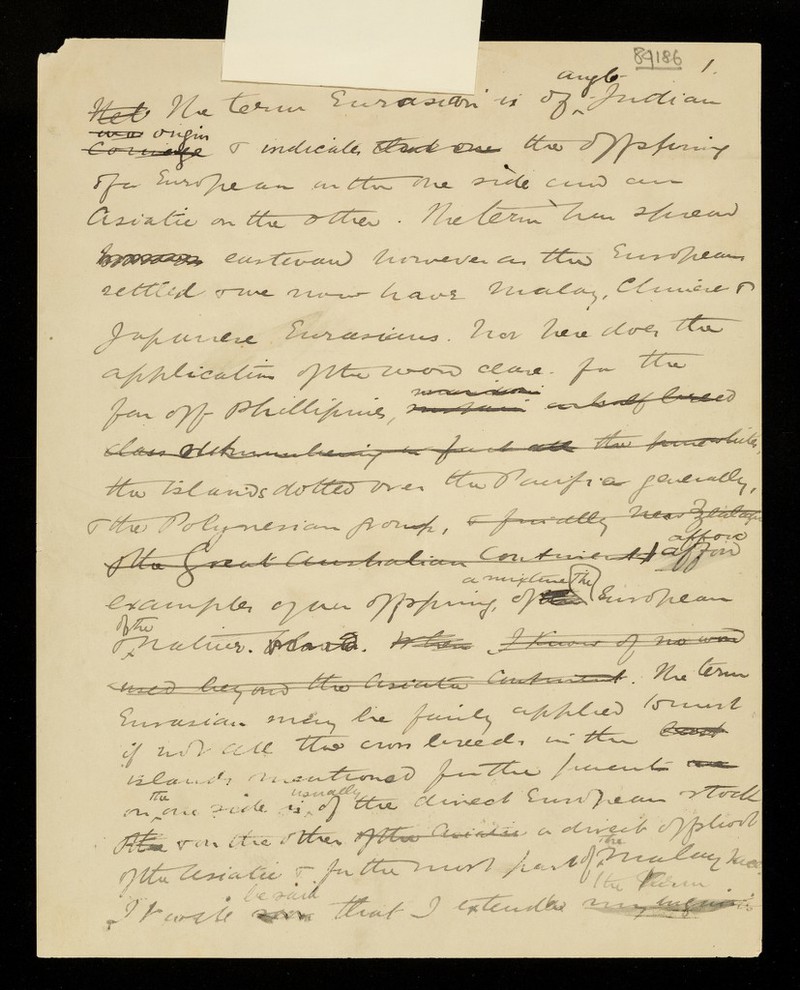 89186 1.
anglo
The term Eurasian is of Indian
origin
& indicates the offspring
of a European on the one side and an
Asiatic on the other. The term has spread
eastward however as the Europeans
settled & we now have Malay, Chinese &
Japanese Eurasians. Nor here does the
application of the word cease. for the
far off Phillipines, or half breed
class the pure whites,
the islands dotted over the Pacific generally,
& the Polynesian group, & finally New Zealand
afford
& the Great Australian Continent afford
a mixture The
examples of an offspring, of European
of the
& native. When I know of no word
used beyond the Asiatic Continent. The term
Eurasian may be fairly applied to most
if not all the cross breeds in the East
islands mentioned for the parents are
the usually
on one side is of the direct European stock
& on the other of the Asiatic a direct offshoot
the
of the Asiatic & for the most part of Malay race.
be said the term
It will that I extend my